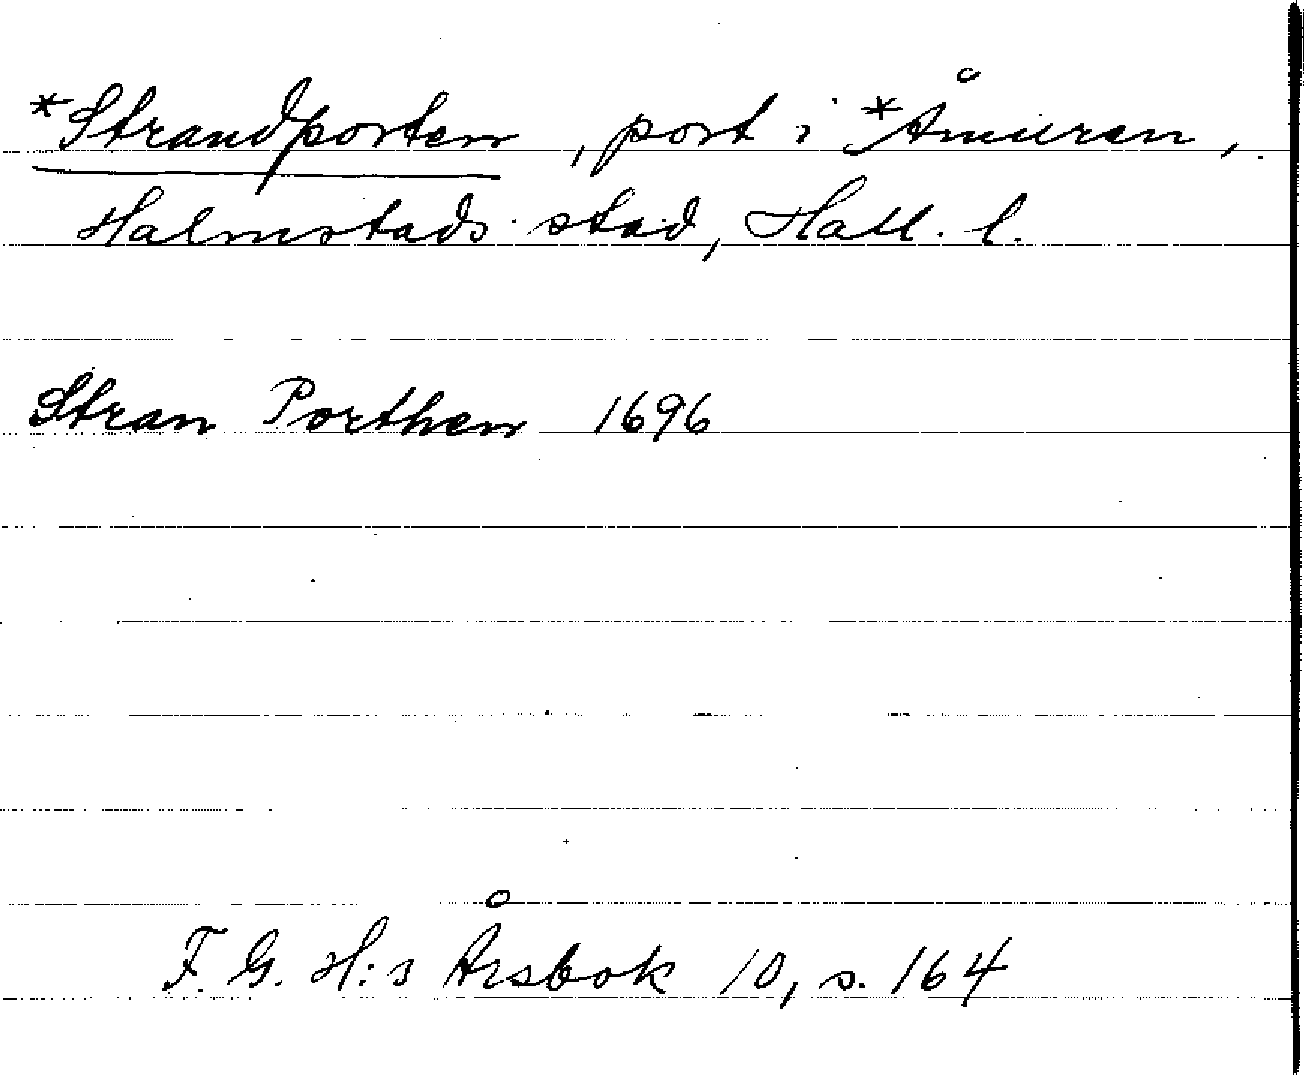 *Strandporten, port i *Åmuren,
Halmstads stad, Hall. l.
Stran Porthen 1696
F. G. H:s Årsbok 10, s. 164